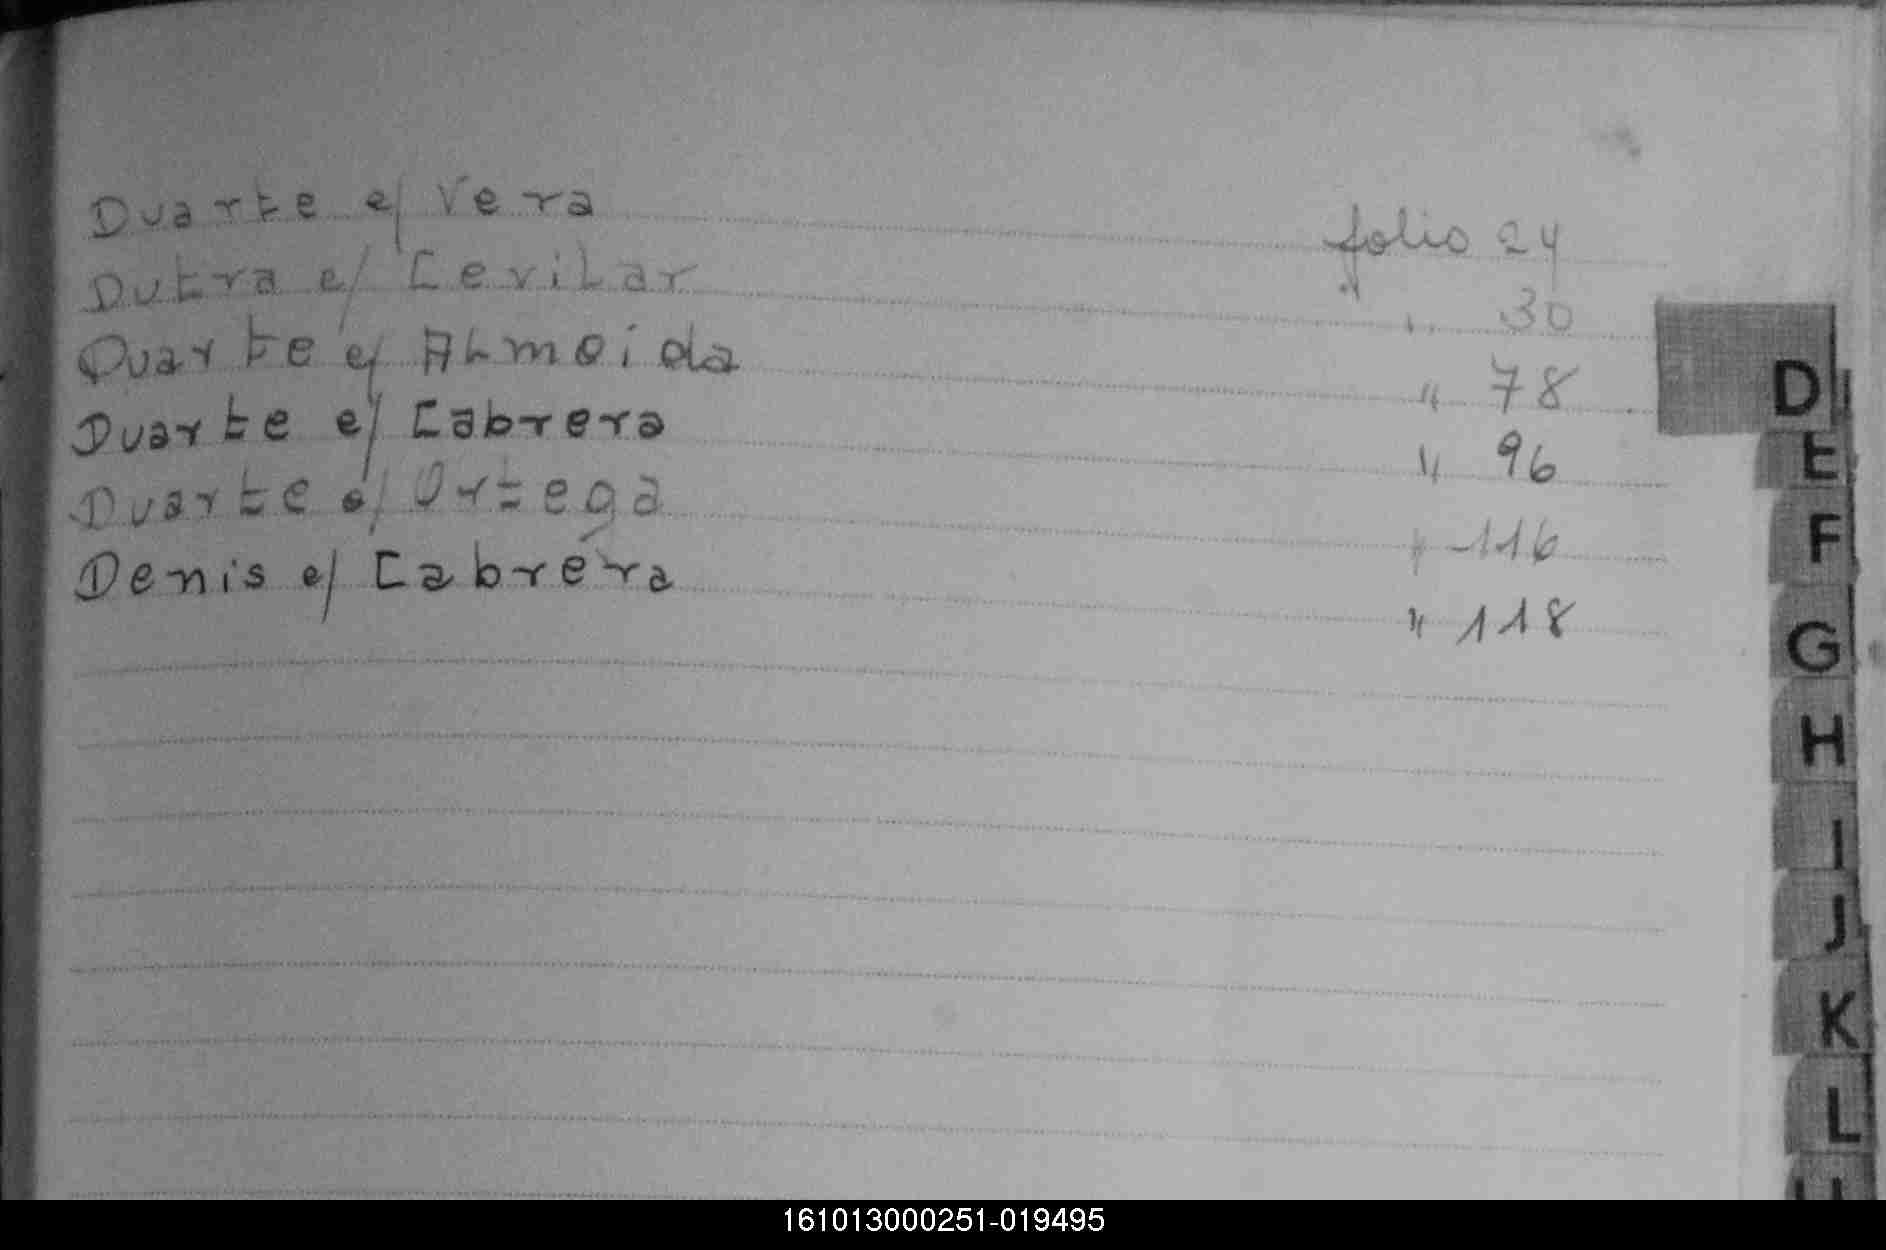 Duarte c/ Vera folio 24
Dutra c/ Cevilar " 30
Duarte c/ Almoida " 78
Duarte c/ Cabrera " 96
Duarte c/ Ortega " 116
Denis c/ Cabrera " 118
D
E
F
G
H
I
J
K
L
161013000251-019495